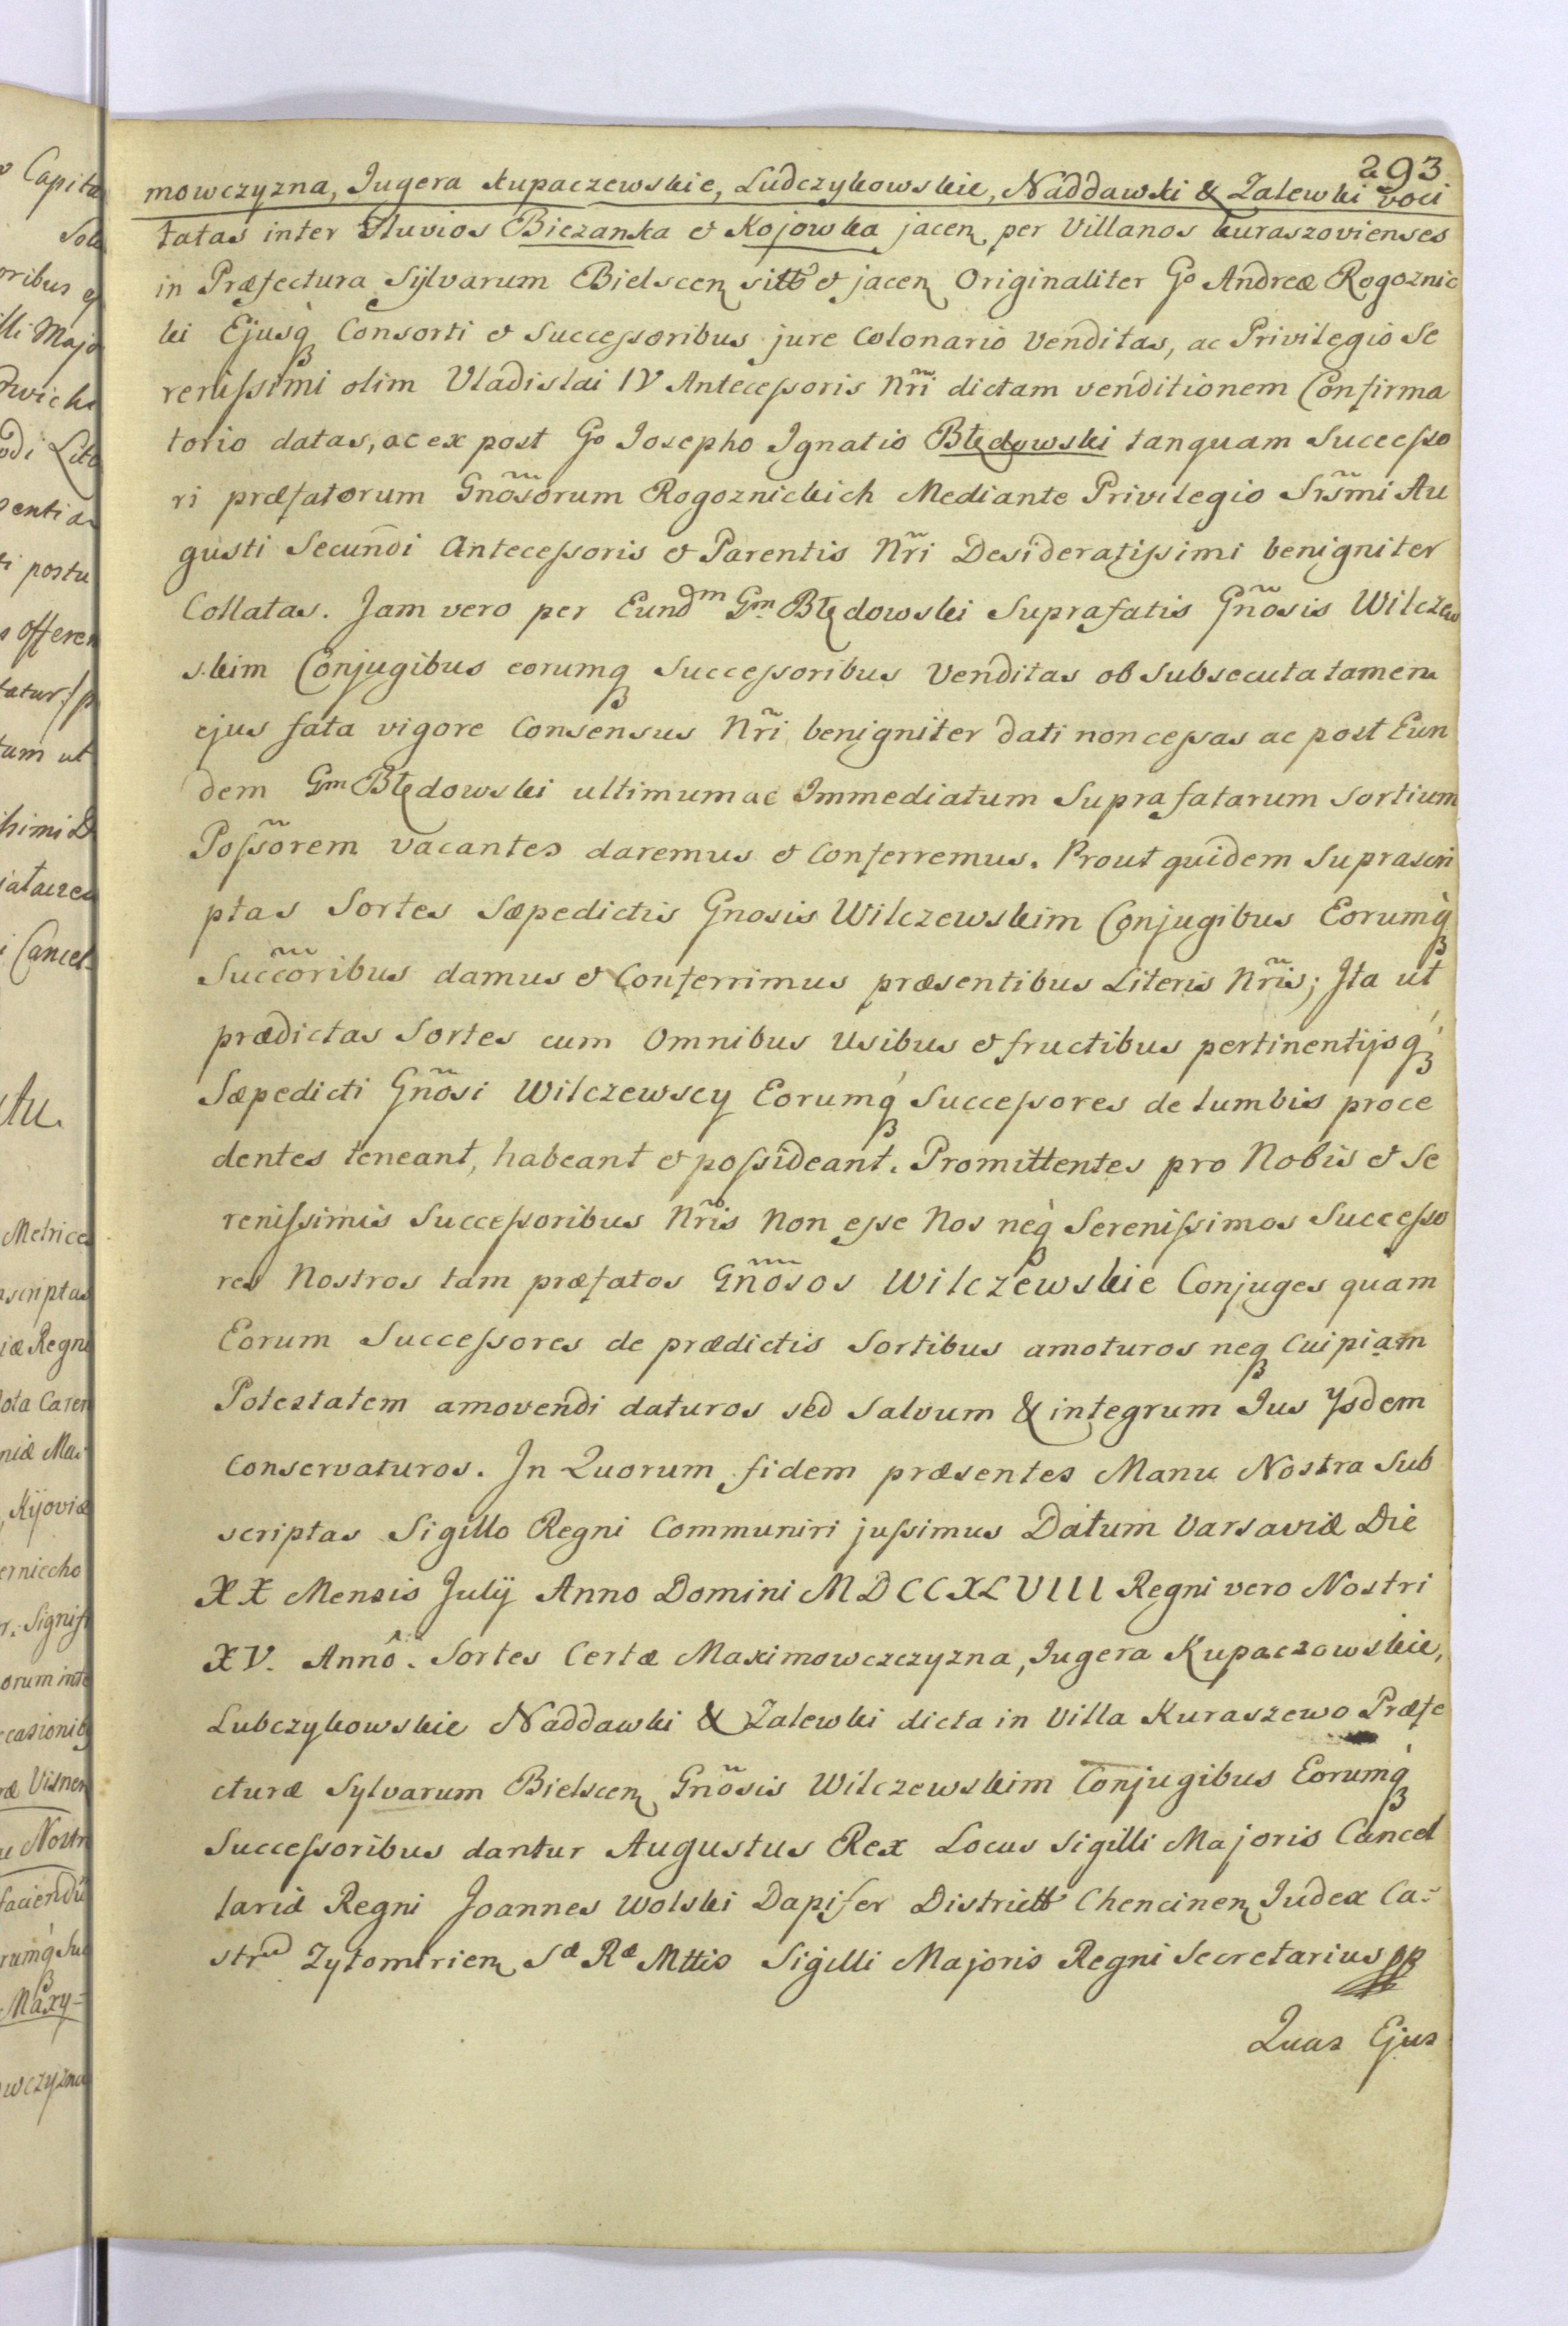 293
mowczyzna, Jugera Kupaczewskie, Ludczykowskie, Naddawki & Zalewki voci
tatas inter Fluvios Biezanka et Kojowka jacen per Villanos Kuraszovienses
in Præfectura Sylvarum Bielscen sitt et jacen Originaliter Go Andreæ Rogoznic
ki Ejusq Consorti et Successoribus jure Colonario venditas, ac Privilegio Se
renissimi olim Vladislai IV Antecessoris Nri dictam venditionem Confirma
torio datas, ac ex post Go Josepho Ignatio Błędowski tanquam Successo
ri præfatorum Gnosorum Rogoznickich Mediante Privilegio Srsmi Au
gusti Secundi Antecessoris et Parentis Nri Desideratissimi benigniter
Collatas. Jam vero per Eundm Gm Błędowski Suprafatis Gnosis Wilczew
skim Conjugibus eorumq Successoribus Venditas ob subsecuta tamen
ejus fata vigore Consensus Nri benigniter dati non cessas ac post Eun
dem Gm Błędowski ultimum ac Immediatum Suprafatarum Sortium
Possorem vacantes daremus et Conferremus. Prout quidem Suprascri
ptas Sortes Sæpedictis Gnosis Wilczewskim Conjugibus Eorumq
Succoribus damus et Conferrimus præsentibus Literis Nris; Ita ut
prædictas Sortes cum Omnibus Usibus et fructibus pertinentijsq
Sæpedicti Gnosi Wilczewscy Eorumq Successores de lumbis proce
dentes teneant, habeant et possideant. Promittentes pro Nobis et Se
renissimis Successoribus Nris Non esse Nos neq Serenissimos Successo
res Nostros tam præfatos Gnosos Wilczewskie Conjuges quam
Eorum Successores de prædictis Sortibus amoturos neq Cuipiam
Potestatem amovendi daturos sed Salvum & integrum Jus Ysdem
Conservaturos. In Quorum fidem præsentes Manu Nostra Sub
scriptas Sigillo Regni Communiri jussimus Datum Varsaviæ Die
XX Mensis Julij Anno Domini MDCCXLVIII Regni vero Nostri
XV. Annô. Sortes Certæ Maximowczczyzna, Jugera Kupaczowskie,
Lubczykowskie Naddawki & Zalewki dicta in Villa Kuraszewo Præfe
cturæ Sylvarum Bielscen Gnosis Wilczewskim Conjugibus Eorumq
Successoribus dantur Augustus Rex Locus Sigilli Majoris Cancel
lariæ Regni Joannes Wolski Dapifer Districtt Chencinen Judex Ca-
str Zytomirien Sæ Ræ Mttis Sigilli Majoris Regni Secretarius
Quas Ejus